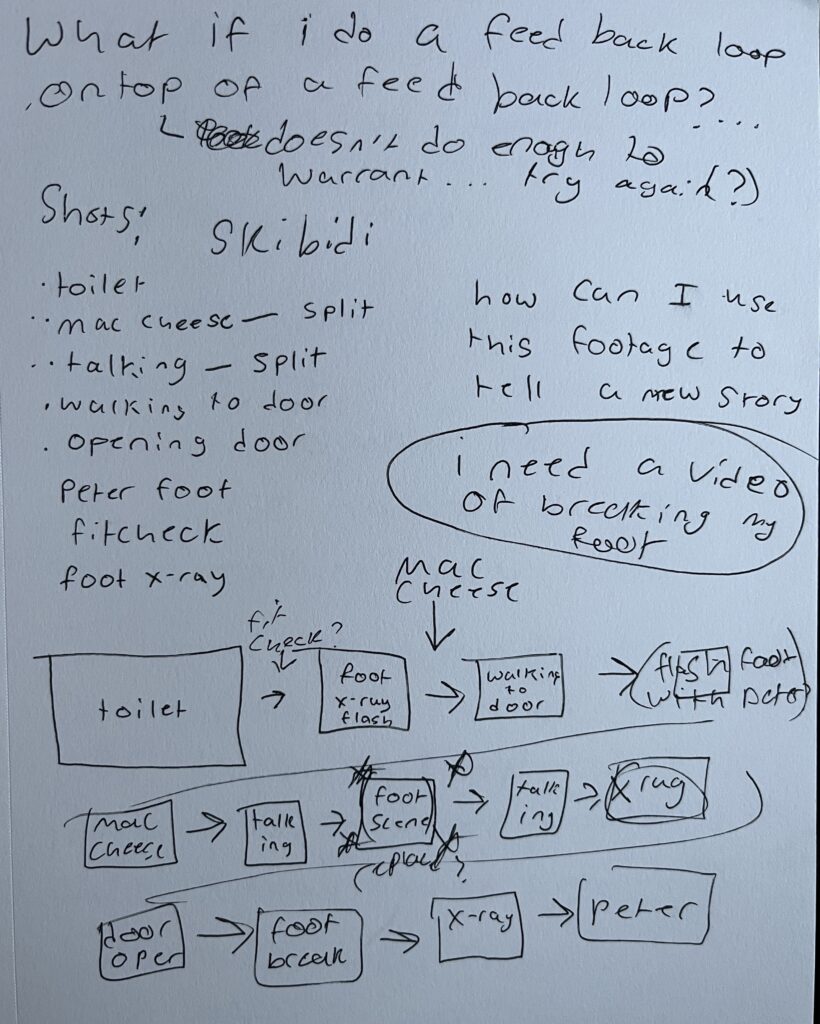 What if i do a feed back loop
on top of a feed back loop?....
doesn't do enogh to
warrant... try again(?)
Shots!
Skibidi
• toilet
•• mac cheese — split
•• talking — split
• walking to door
• opening door
Peter foot
fitcheck
foot x-ray
how can I use
this footage to
tell a new story
i need a video
of breaking my
foot
Mac
cheese
fit
check?
toilet
foot
x-ray
flash
walking
to
door
flash foot
with peter
mac
cheese
talk
ing
foot
scene
replace?
talk
ing
x ray
door
open
foot
break
x-ray
Peter